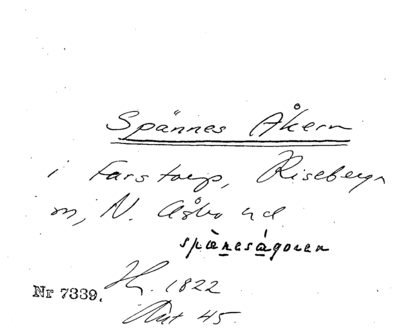 Spännes Åkern
i Farstorp, Riseberga
sn, N. Åsbo hd
spänesågoren
Nr 7339.
1822
45.